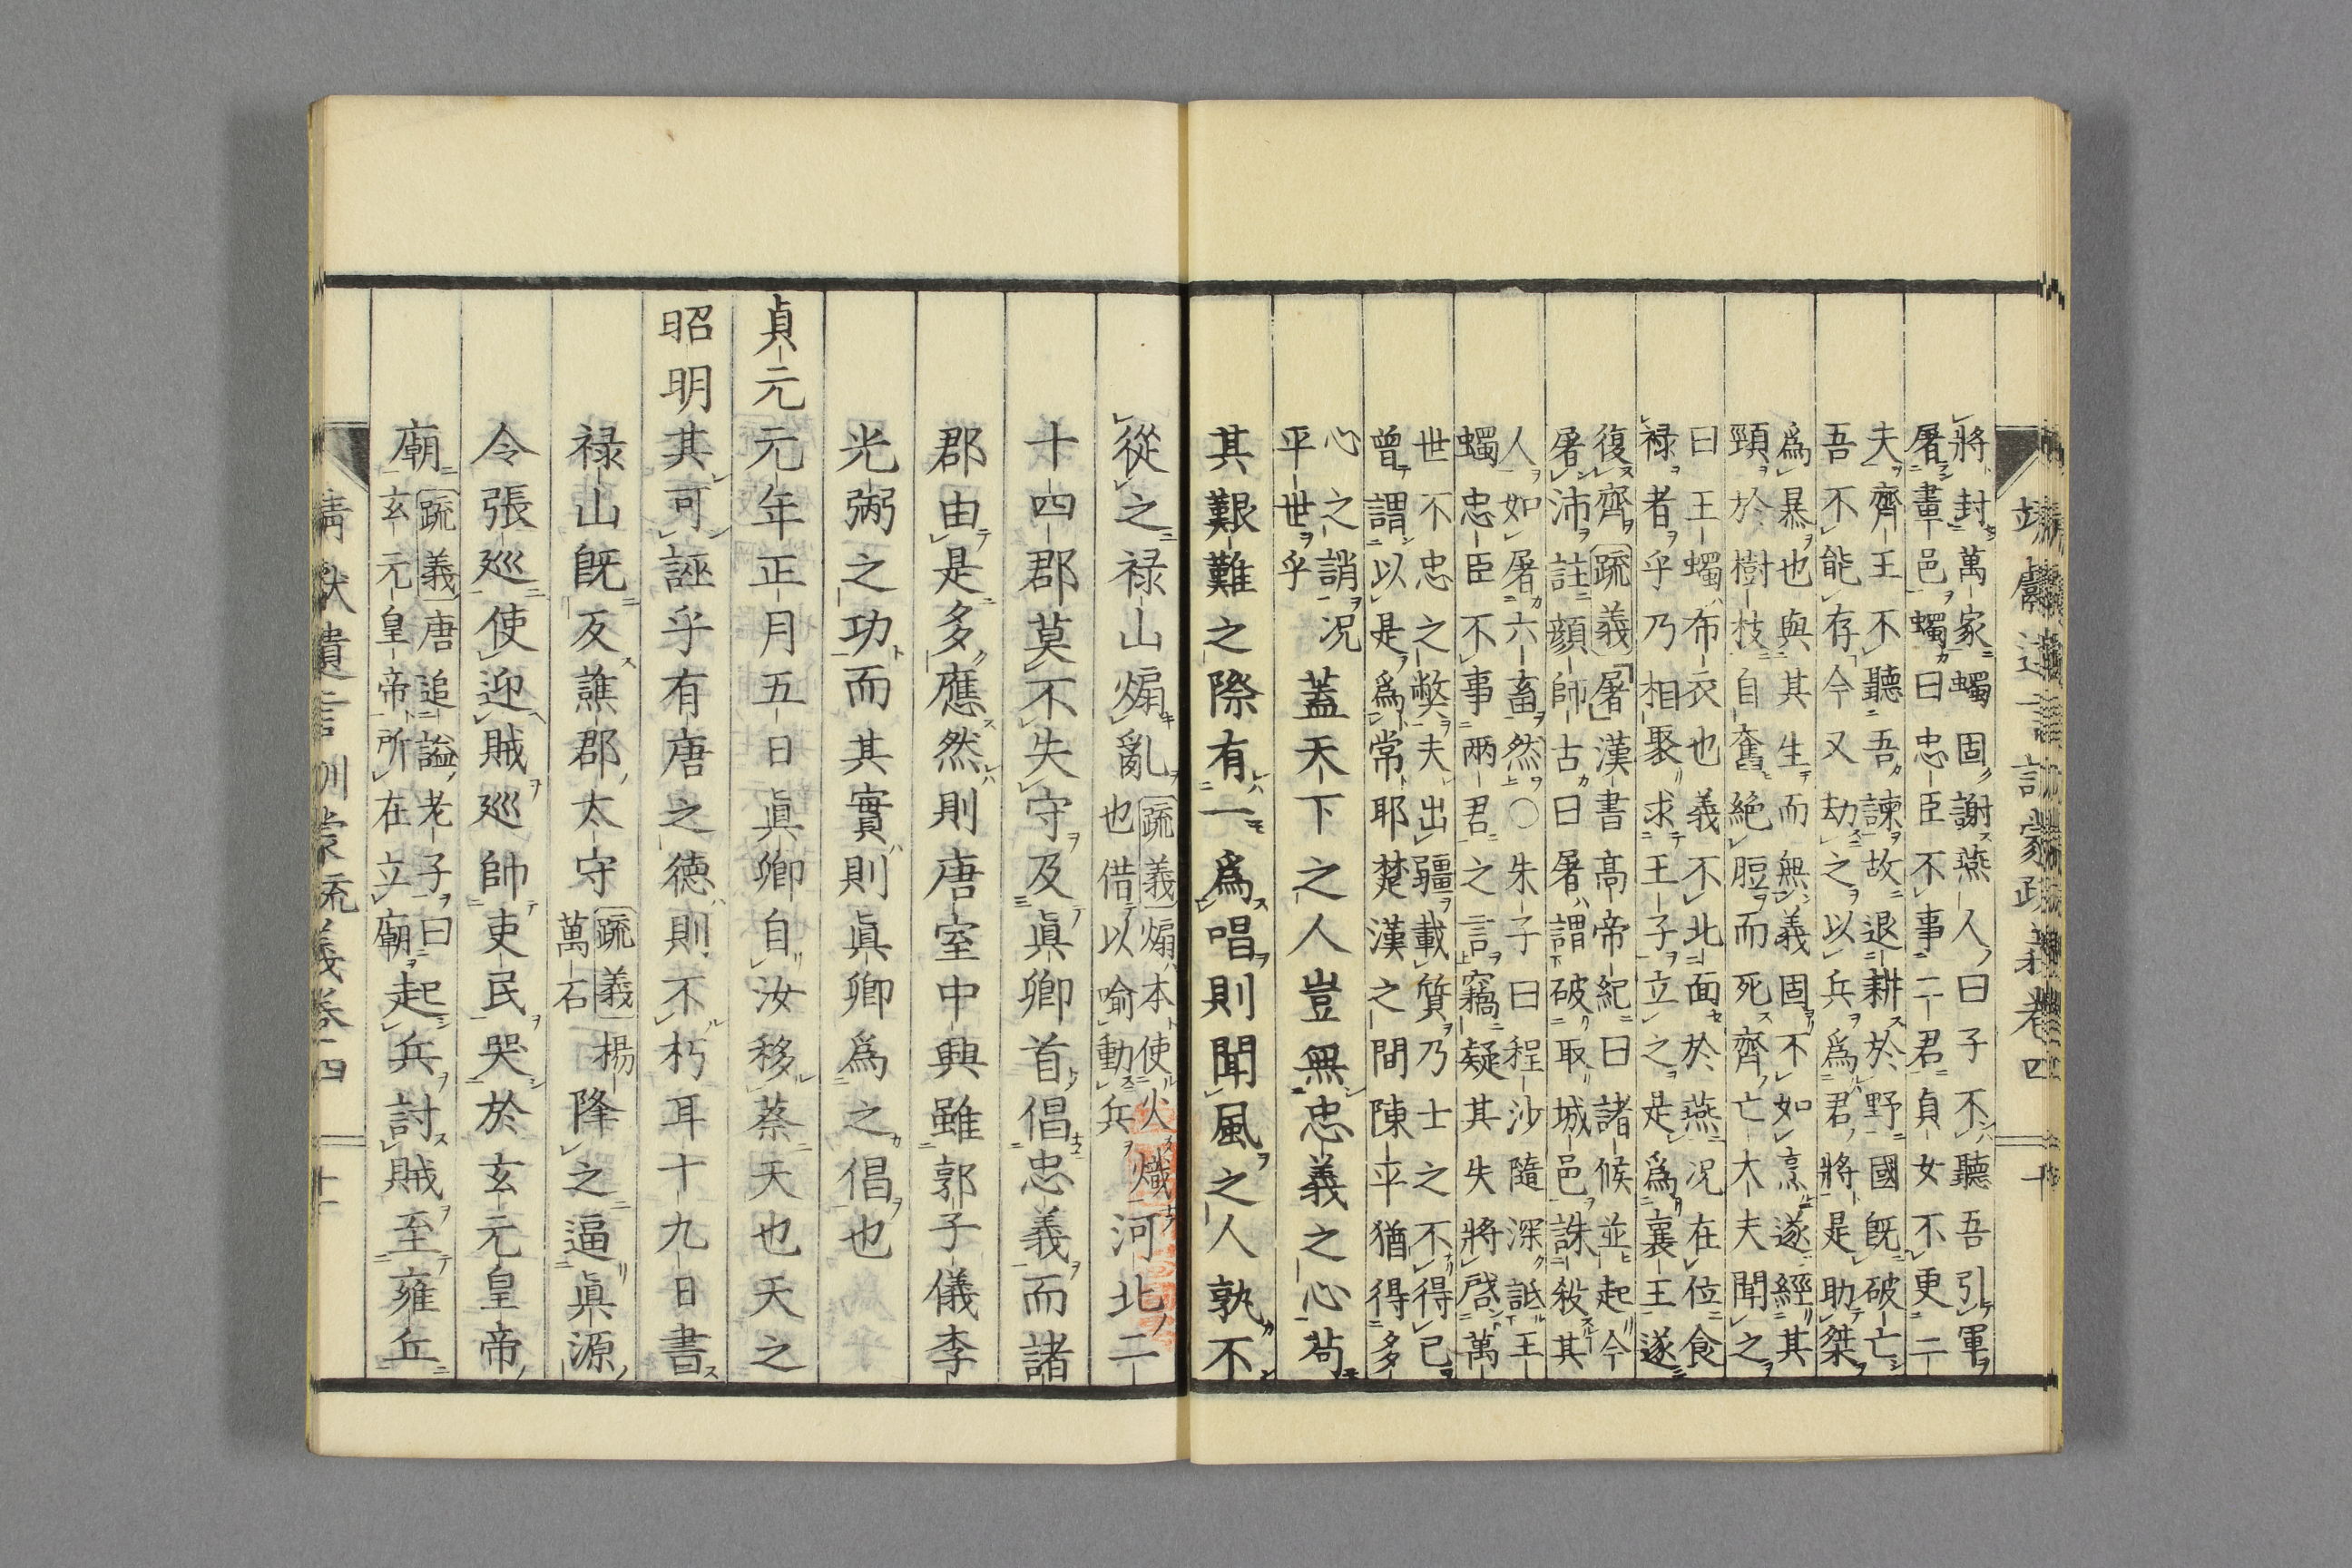 靖獻遺言訓蒙疏義卷四 十
將封萬家蠋固謝燕人曰子不聽吾引軍
屠畫邑蠋曰忠臣不事二君貞女不更二
夫齊王不聽吾諫故退耕於野國既破亡
吾不能存今又劫之以兵爲君將是助桀
爲暴也與其生而無義固不如烹遂經其
頸於樹枝自奮絶脰而死齊亡大夫聞之
曰王蠋布衣也義不北面於燕况在位食
禄者乎乃相聚求王子立之是爲襄王遂
復齊疏義屠漢書高帝紀曰諸候並起今
屠沛註顔師古曰屠謂破取城邑誅殺其
人如屠六畜然〇朱子曰程沙隨深詆王
蠋忠臣不事兩君之言竊疑其失將啓萬
世不忠之弊夫出疆載質乃士之不得已
曾謂以是爲常耶楚漢之間陳平猶得多
心之誚况
平世乎
蓋天下之人豈無忠義之心苟
其艱難之際有一爲唱則聞風之人孰不
從之禄山煽亂
疏義煽本使火熾
也借以喻動兵
河北二
十四郡莫不失守及眞卿首倡忠義而諸
郡由是多應然則唐室中興雖郭子儀李
光弼之功而其實則眞卿爲之倡也
貞元元年正月五日眞卿自汝移蔡天也天之
昭明其可誣乎有唐之德則不朽耳十九日書
禄山既反譙郡太守
疏義楊
萬石
降之逼眞源
令張巡使迎賊巡帥吏民哭於玄元皇帝
廟
疏義唐追謚老子曰
玄元皇帝所在立廟
起兵討賊至雍丘
靖獻遺言訓蒙疏義卷四